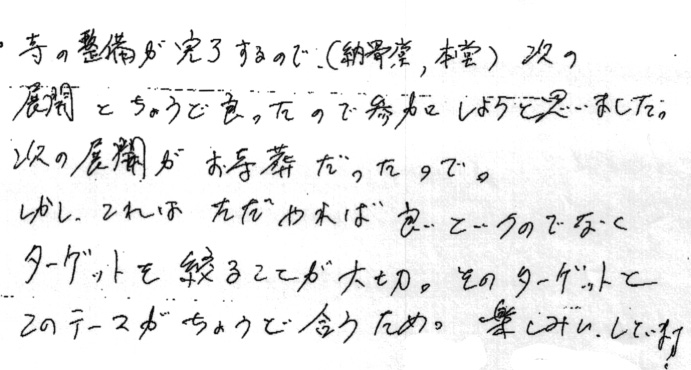 ・寺の整備が完了するので、(納骨堂, 本堂) 次の
展開とちょうど良かったので参加しようと思いました。
次の展開がお寺葬だったので。
しかし、これはただやれば良いというのでなく
ターゲットを絞ることが大切。そのターゲットと
このテースがちょうど合うため。楽しみにしています!